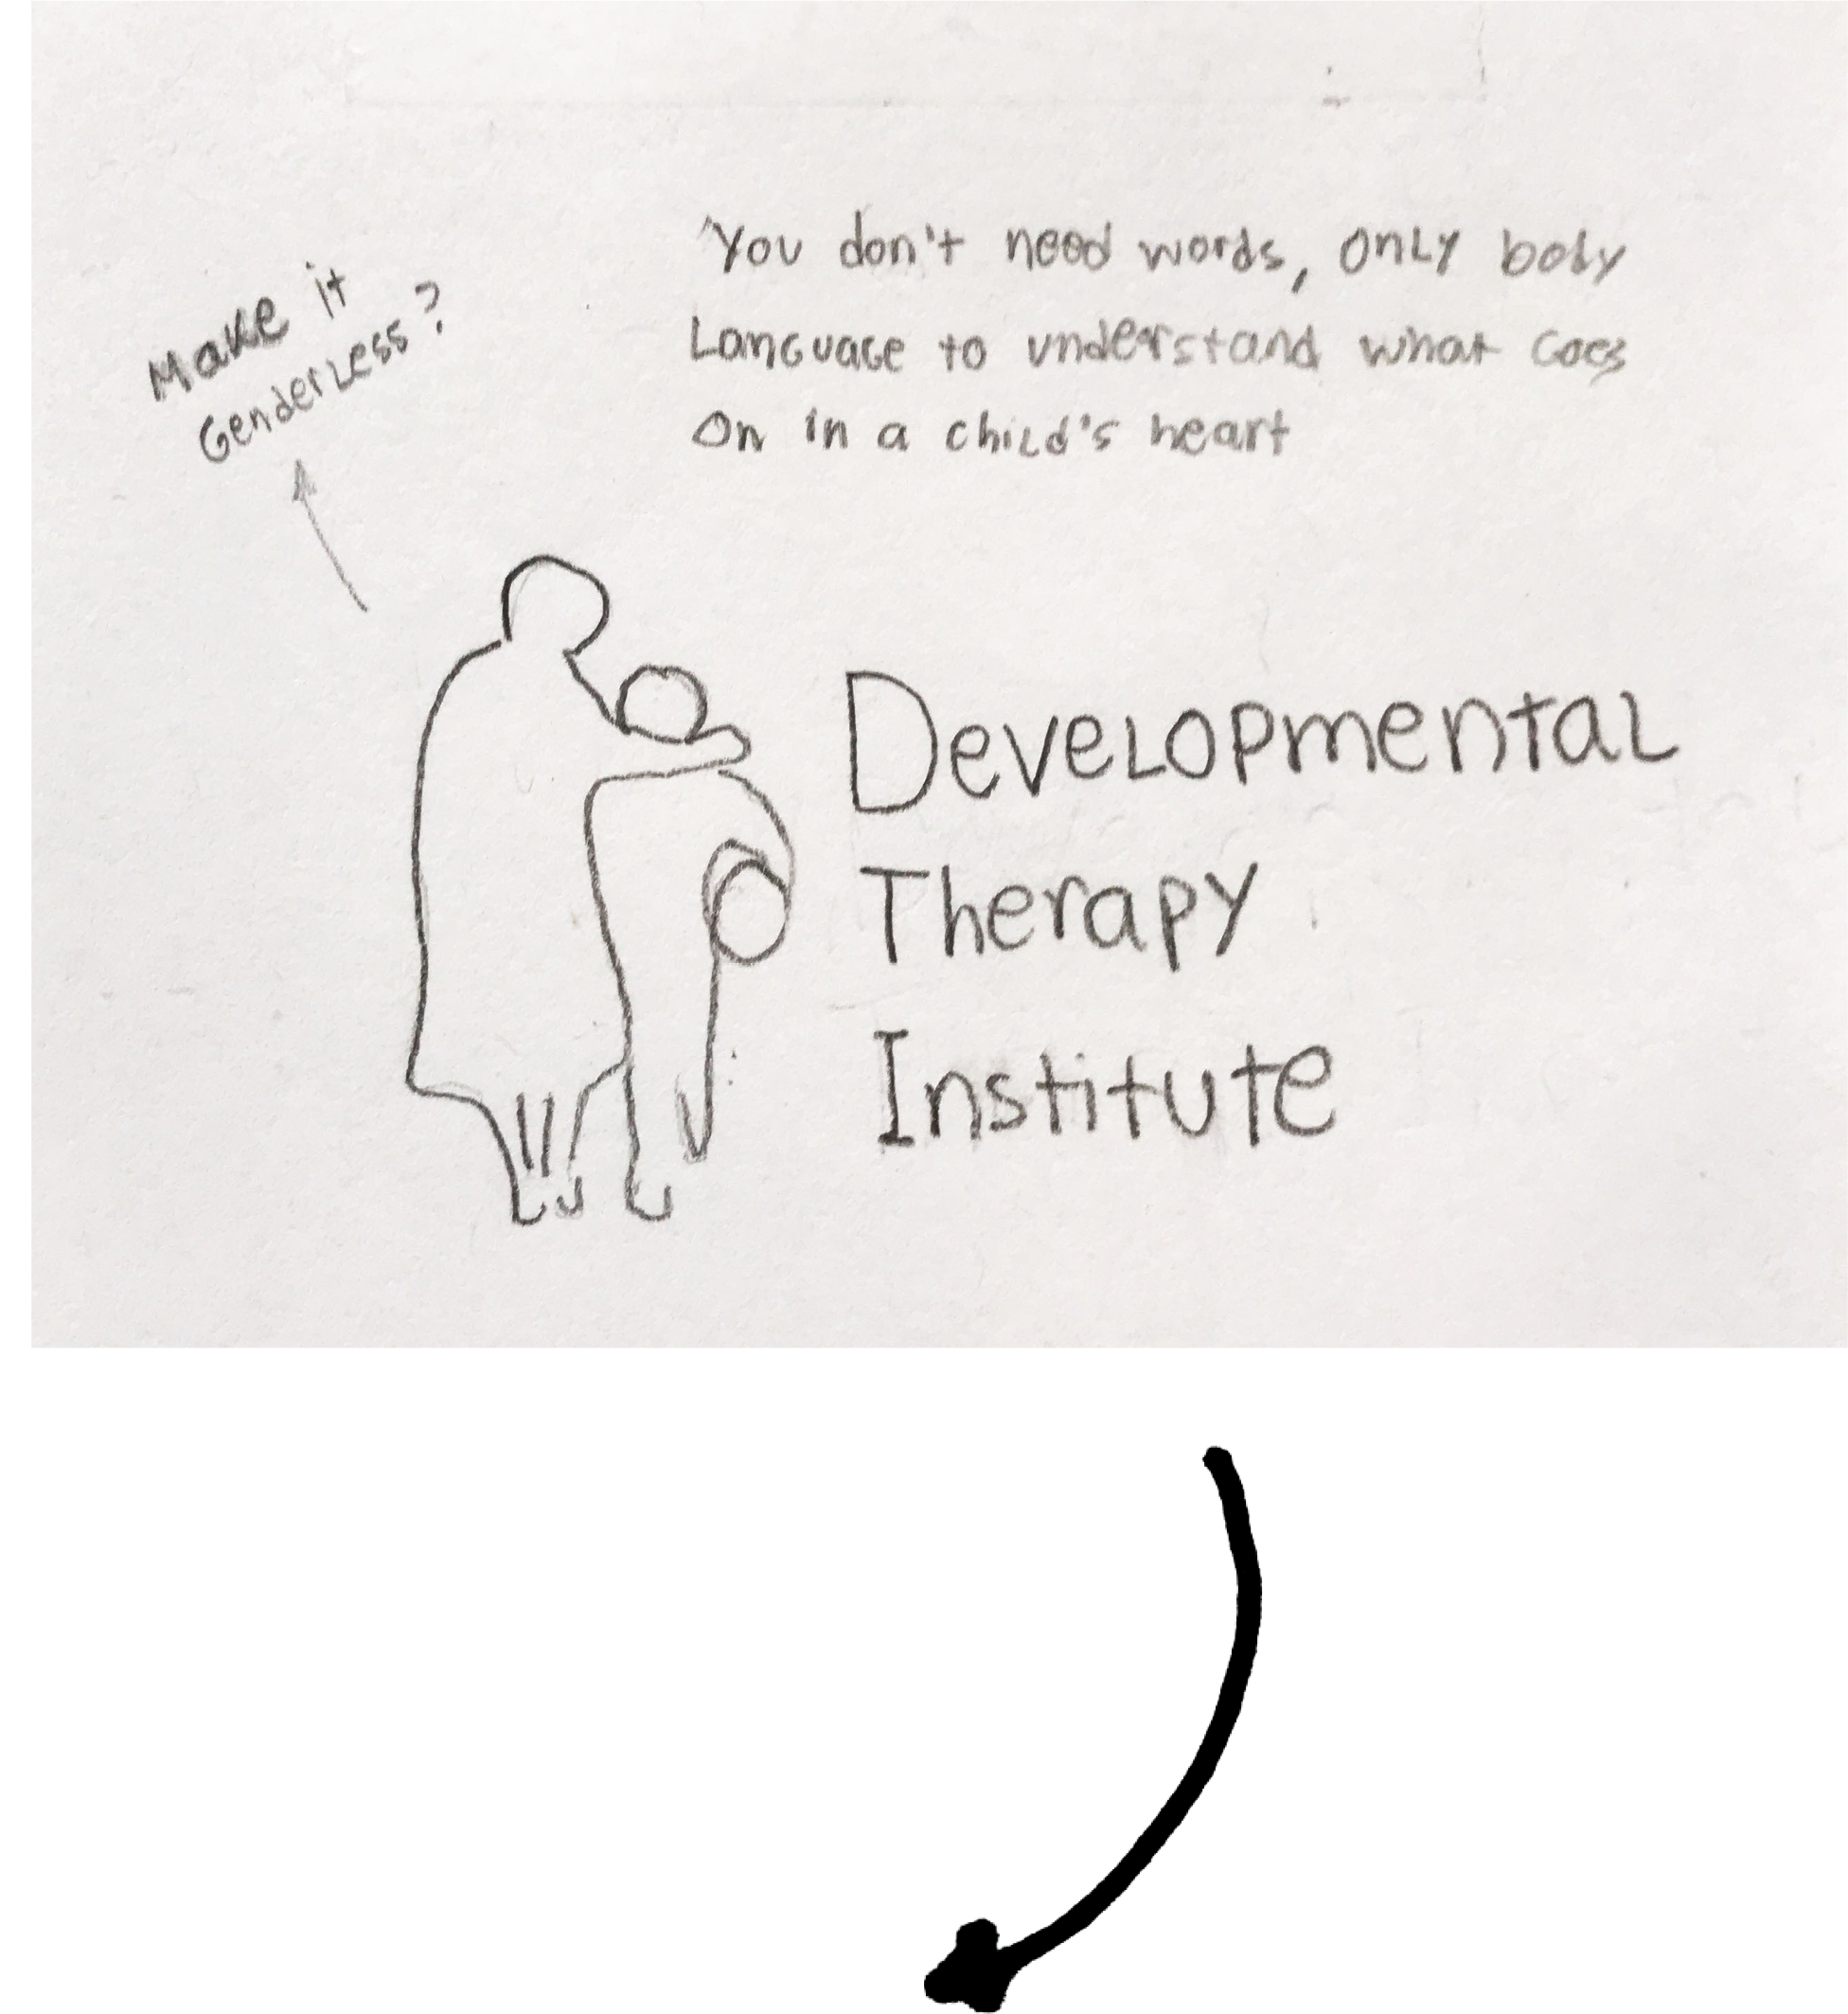 Make it
Genderless?
You don't need words, only body
Language to understand what goes
on in a child's heart
Developmental
Therapy
Institute